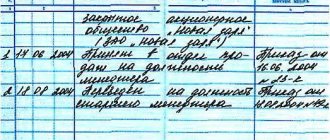 закрытое акционерное
общество „Новая заря"
(ЗАО „Новая заря")
1 14 06 2004 Принят в отдел про- Приказ от
даж на должность 16.06.2004
менеджера
2 18 08 2004 Переведен на должность Приказ от
старшего менеджера